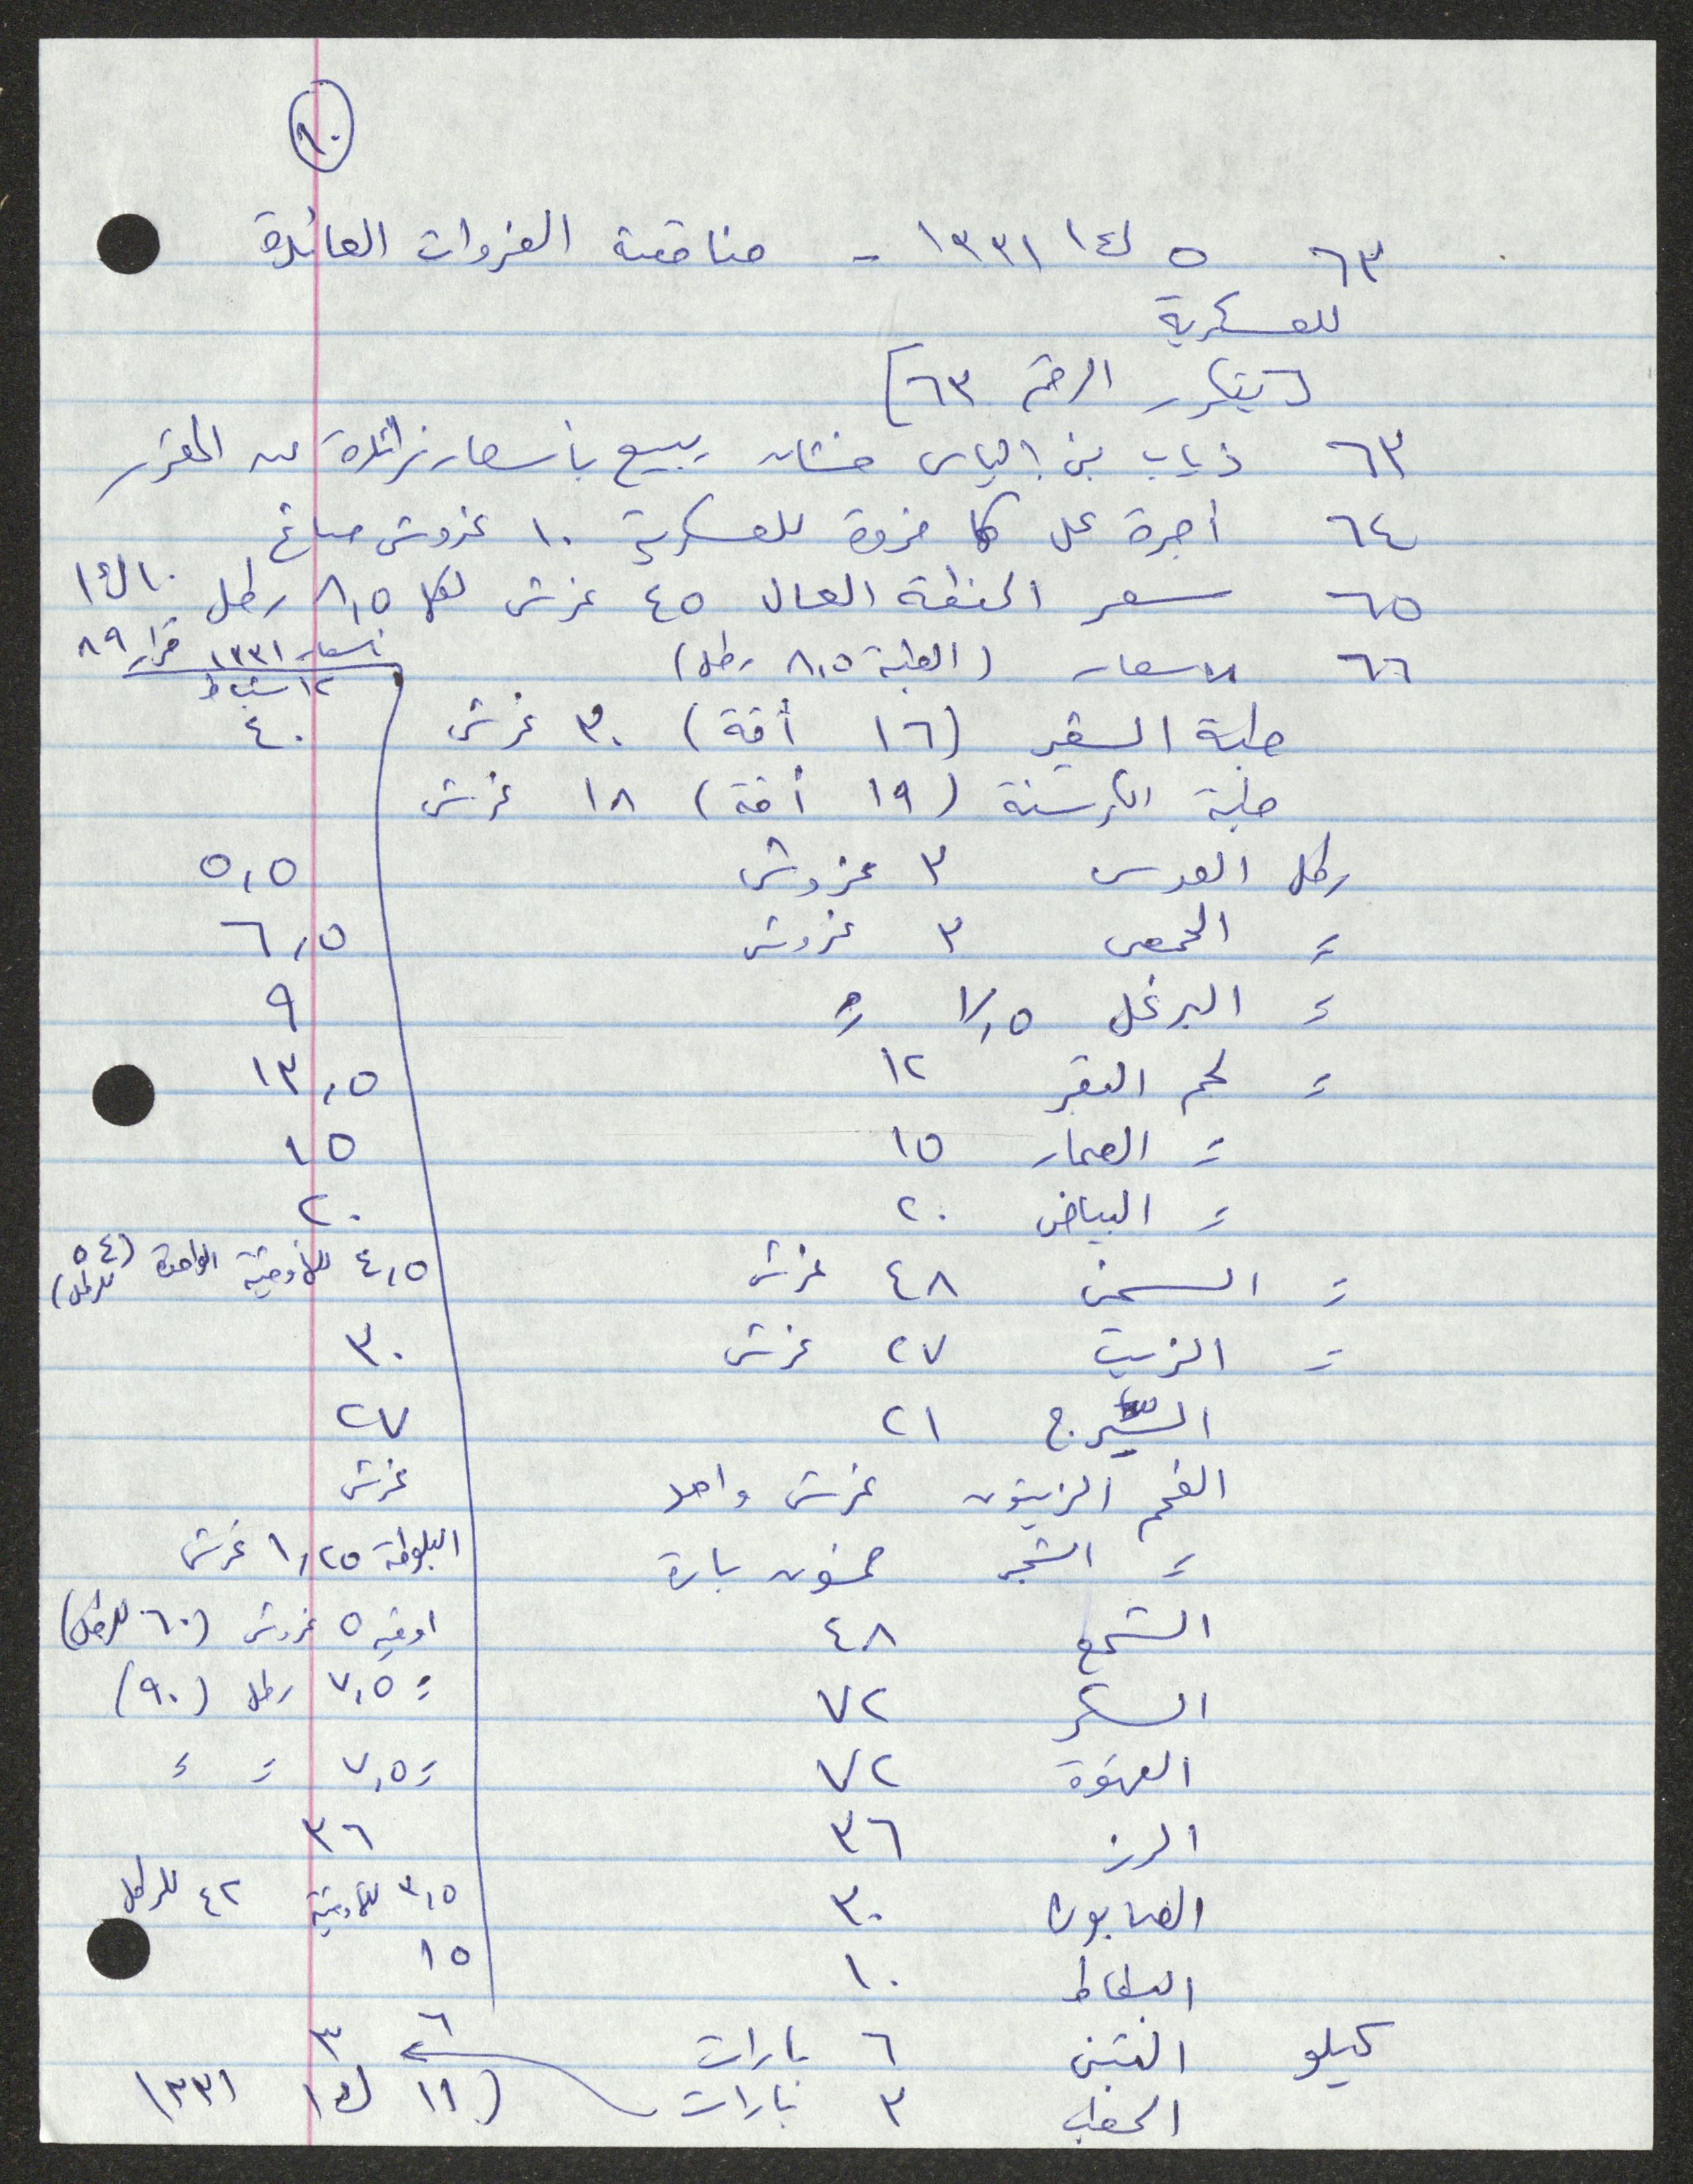 ١٠
٦٣ ٥ ك١ ١٣٣١ - مناقصة الفروات العائدة
للعسكرية
[يتكرر الرقم ٦٣]
٦٣ ذياب بن الياس يبيع بأسعار زائدة عن المقرر
٦٤ أجرة عمل كل فروة للعسكرية ١٠ غروش صاغ
٦٥ سعر الحنطة العال ٤٥ غرش لكل ٨,٥ رطل ١٠ ك١
٦٦ الاسعار (العلبة ٨,٥ رطل) أسعار ١٣٣١ قرار ٨٩
١٢ شباط
علبة الشعير (١٦ أقة) ٣٠ غرش ٤٠
علبة الكرسنة (١٩ أقة) ١٨ غرش
رطل العدس ٣ غروش ٥,٥
= الحمص ٣ غروش ٦,٥
= البرغل ٧,٥ = ٩
= لحم البقر ١٢ ١٣,٥
= المعمار ١٥ ١٥
= البياض ٢٠ ٢٠
= السمن ٤٨ غرش ٤,٥ للأوقية الواحدة (٥٤ للرطل)
= الزيت ٢٧ غرش ٣٠
السيرج ٢١ ٢٧
الفحم الزيتون غرش واحد غرش
= الشجر خمسون بارة البلوطة ١,٢٥ غرش
الشمع ٤٨ اوقية ٥ غروش (٦٠ للرطل)
السكر ٧٢ = ٧,٥ رطل (٩٠)
القهوة ٧٢ = ٧,٥ = =
الرز ٣٦ ٣٦
الصابون ٣٠ ٣,٥ للأوقية ٤٢ للرطل
البطاط ١٠ ١٥
كيلو التبن ٦ بارات ٦ ٣
الحطب ٣ بارات (١١ ك١ ١٣٣١